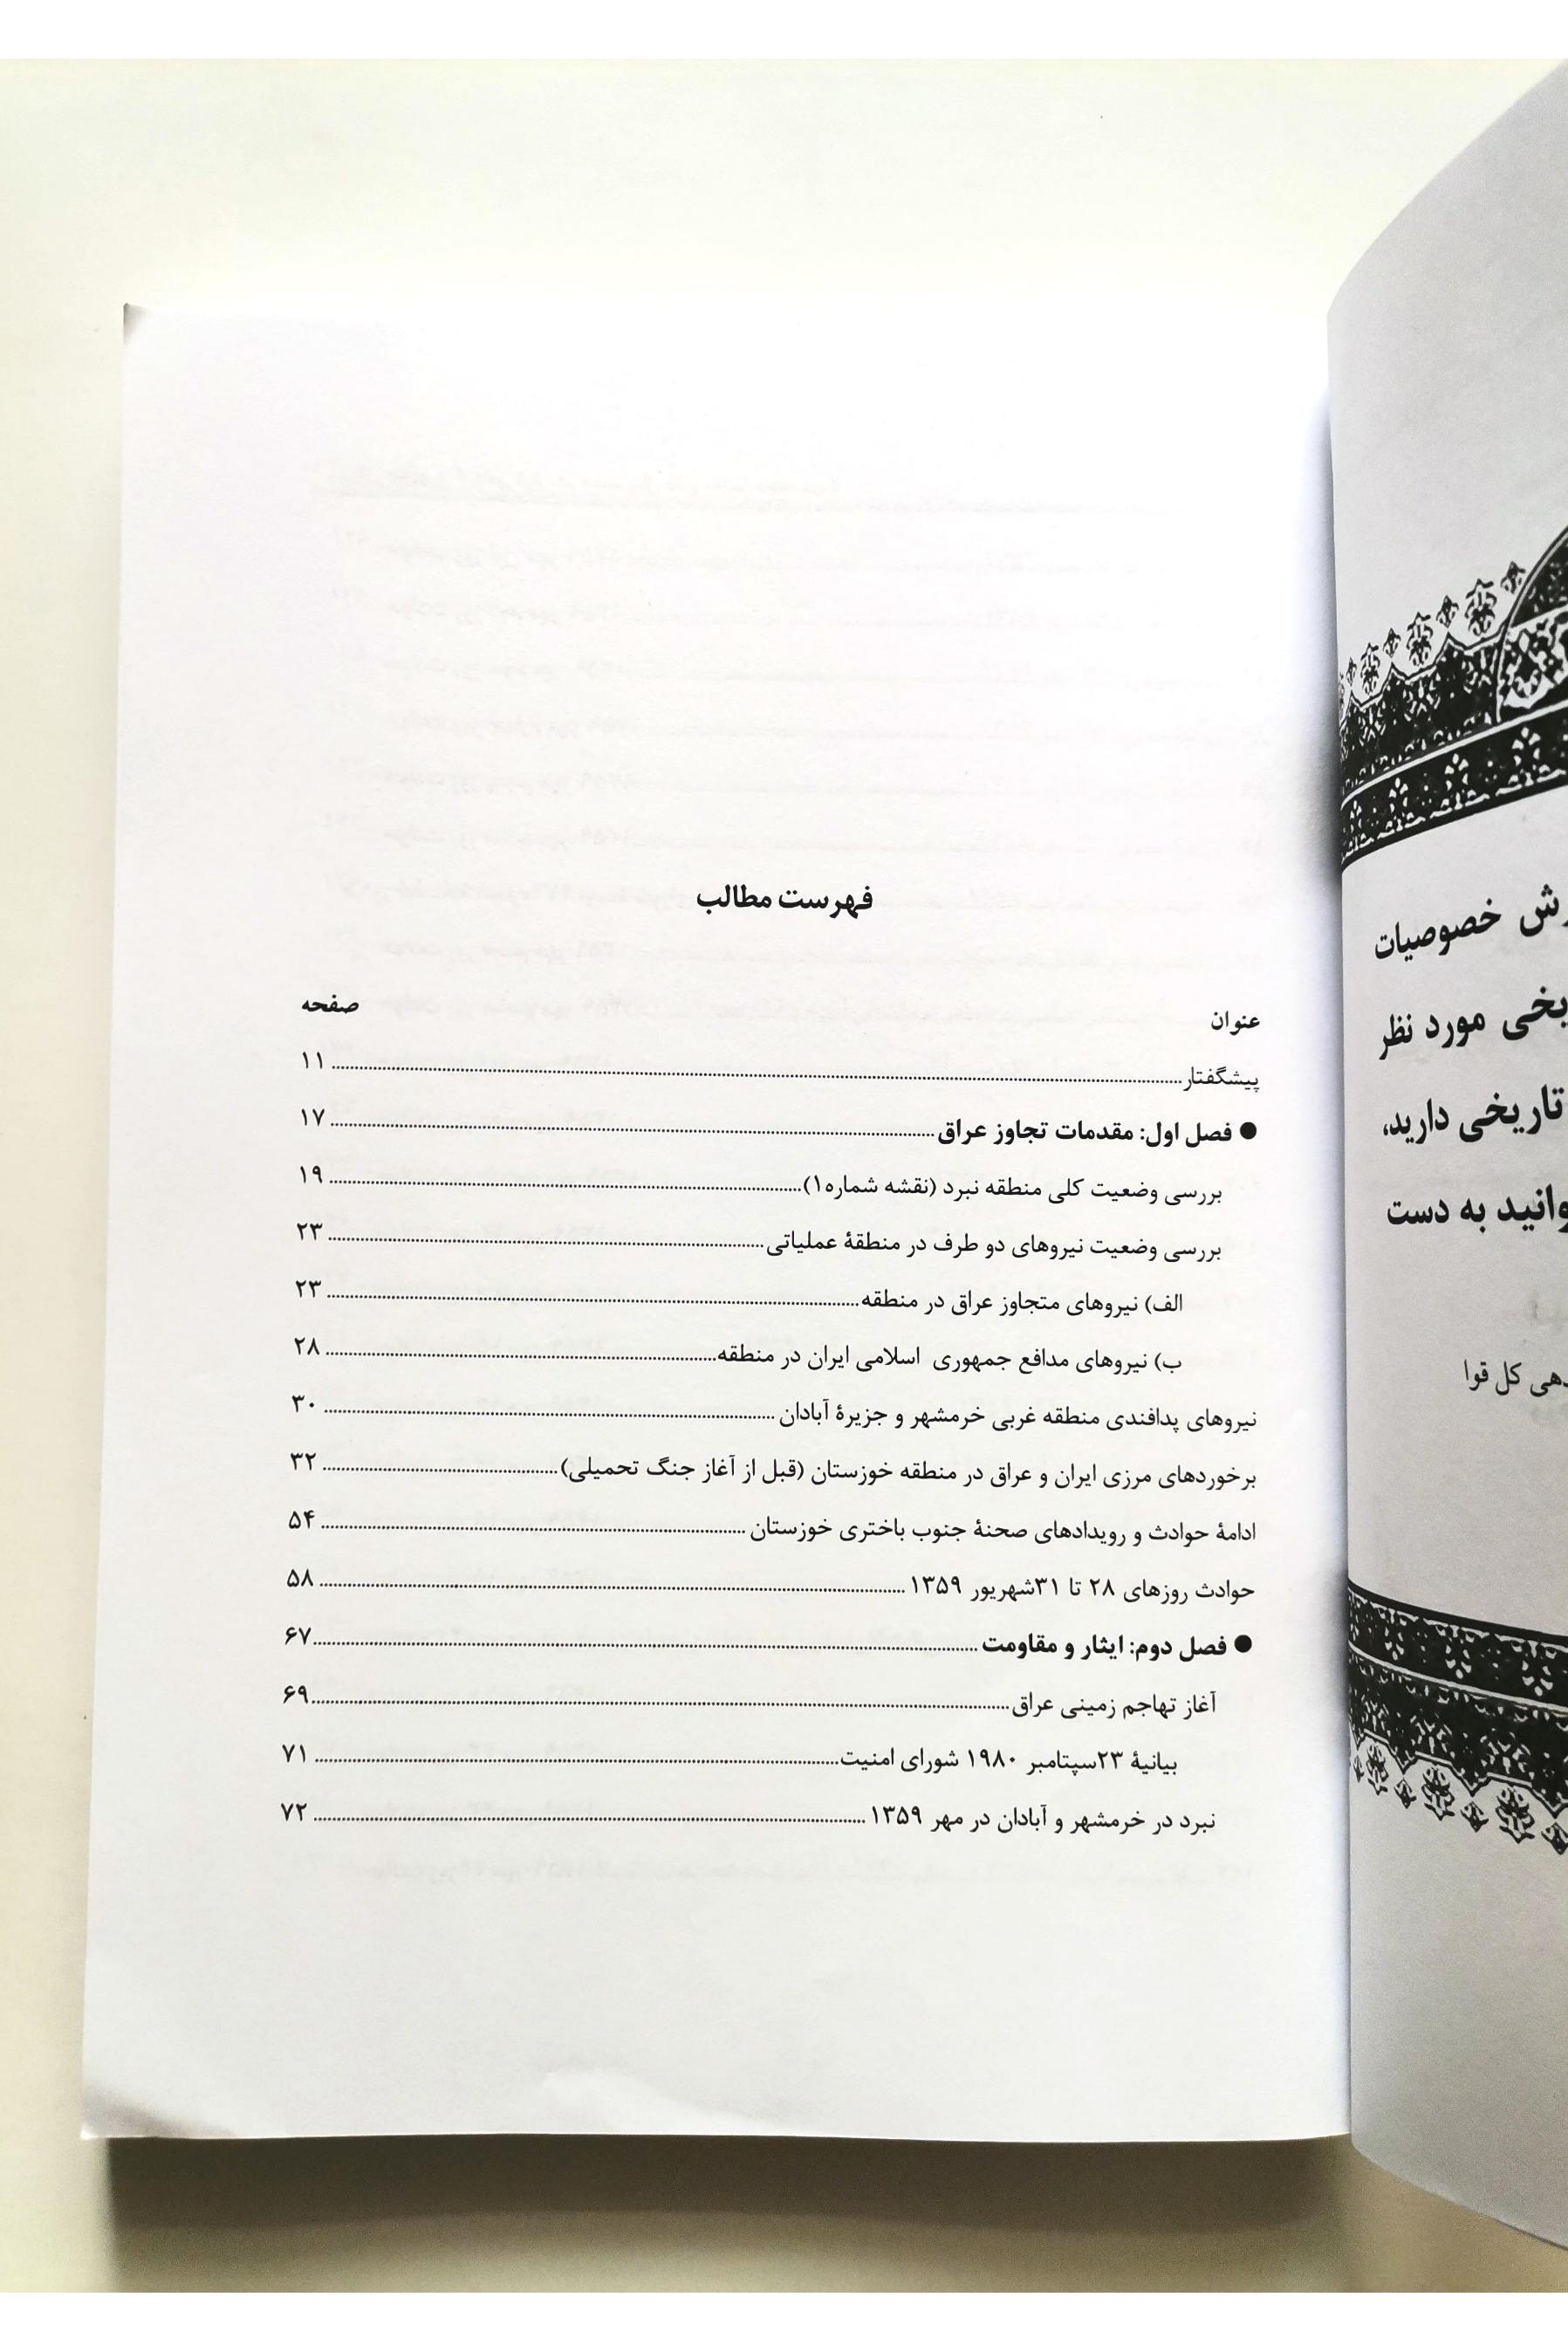 رش خصوصیات
یخی مورد نظر
تاریخی دارید،
وانید به دست
دهی کل قوا
فهرست مطالب
عنوان صفحه
پیشگفتار ۱۱
● فصل اول: مقدمات تجاوز عراق ۱۷
بررسی وضعیت کلی منطقه نبرد (نقشه شماره۱) ۱۹
بررسی وضعیت نیروهای دو طرف در منطقهٔ عملیاتی ۲۳
الف) نیروهای متجاوز عراق در منطقه ۲۳
ب) نیروهای مدافع جمهوری اسلامی ایران در منطقه ۲۸
نیروهای پدافندی منطقه غربی خرمشهر و جزیرهٔ آبادان ۳۰
برخوردهای مرزی ایران و عراق در منطقه خوزستان (قبل از آغاز جنگ تحمیلی) ۳۲
ادامهٔ حوادث و رویدادهای صحنهٔ جنوب باختری خوزستان ۵۴
حوادث روزهای ۲۸ تا ۳۱شهریور ۱۳۵۹ ۵۸
● فصل دوم: ایثار و مقاومت ۶۷
آغاز تهاجم زمینی عراق ۶۹
بیانیهٔ ۲۳سپتامبر ۱۹۸۰ شورای امنیت ۷۱
نبرد در خرمشهر و آبادان در مهر ۱۳۵۹ ۷۲